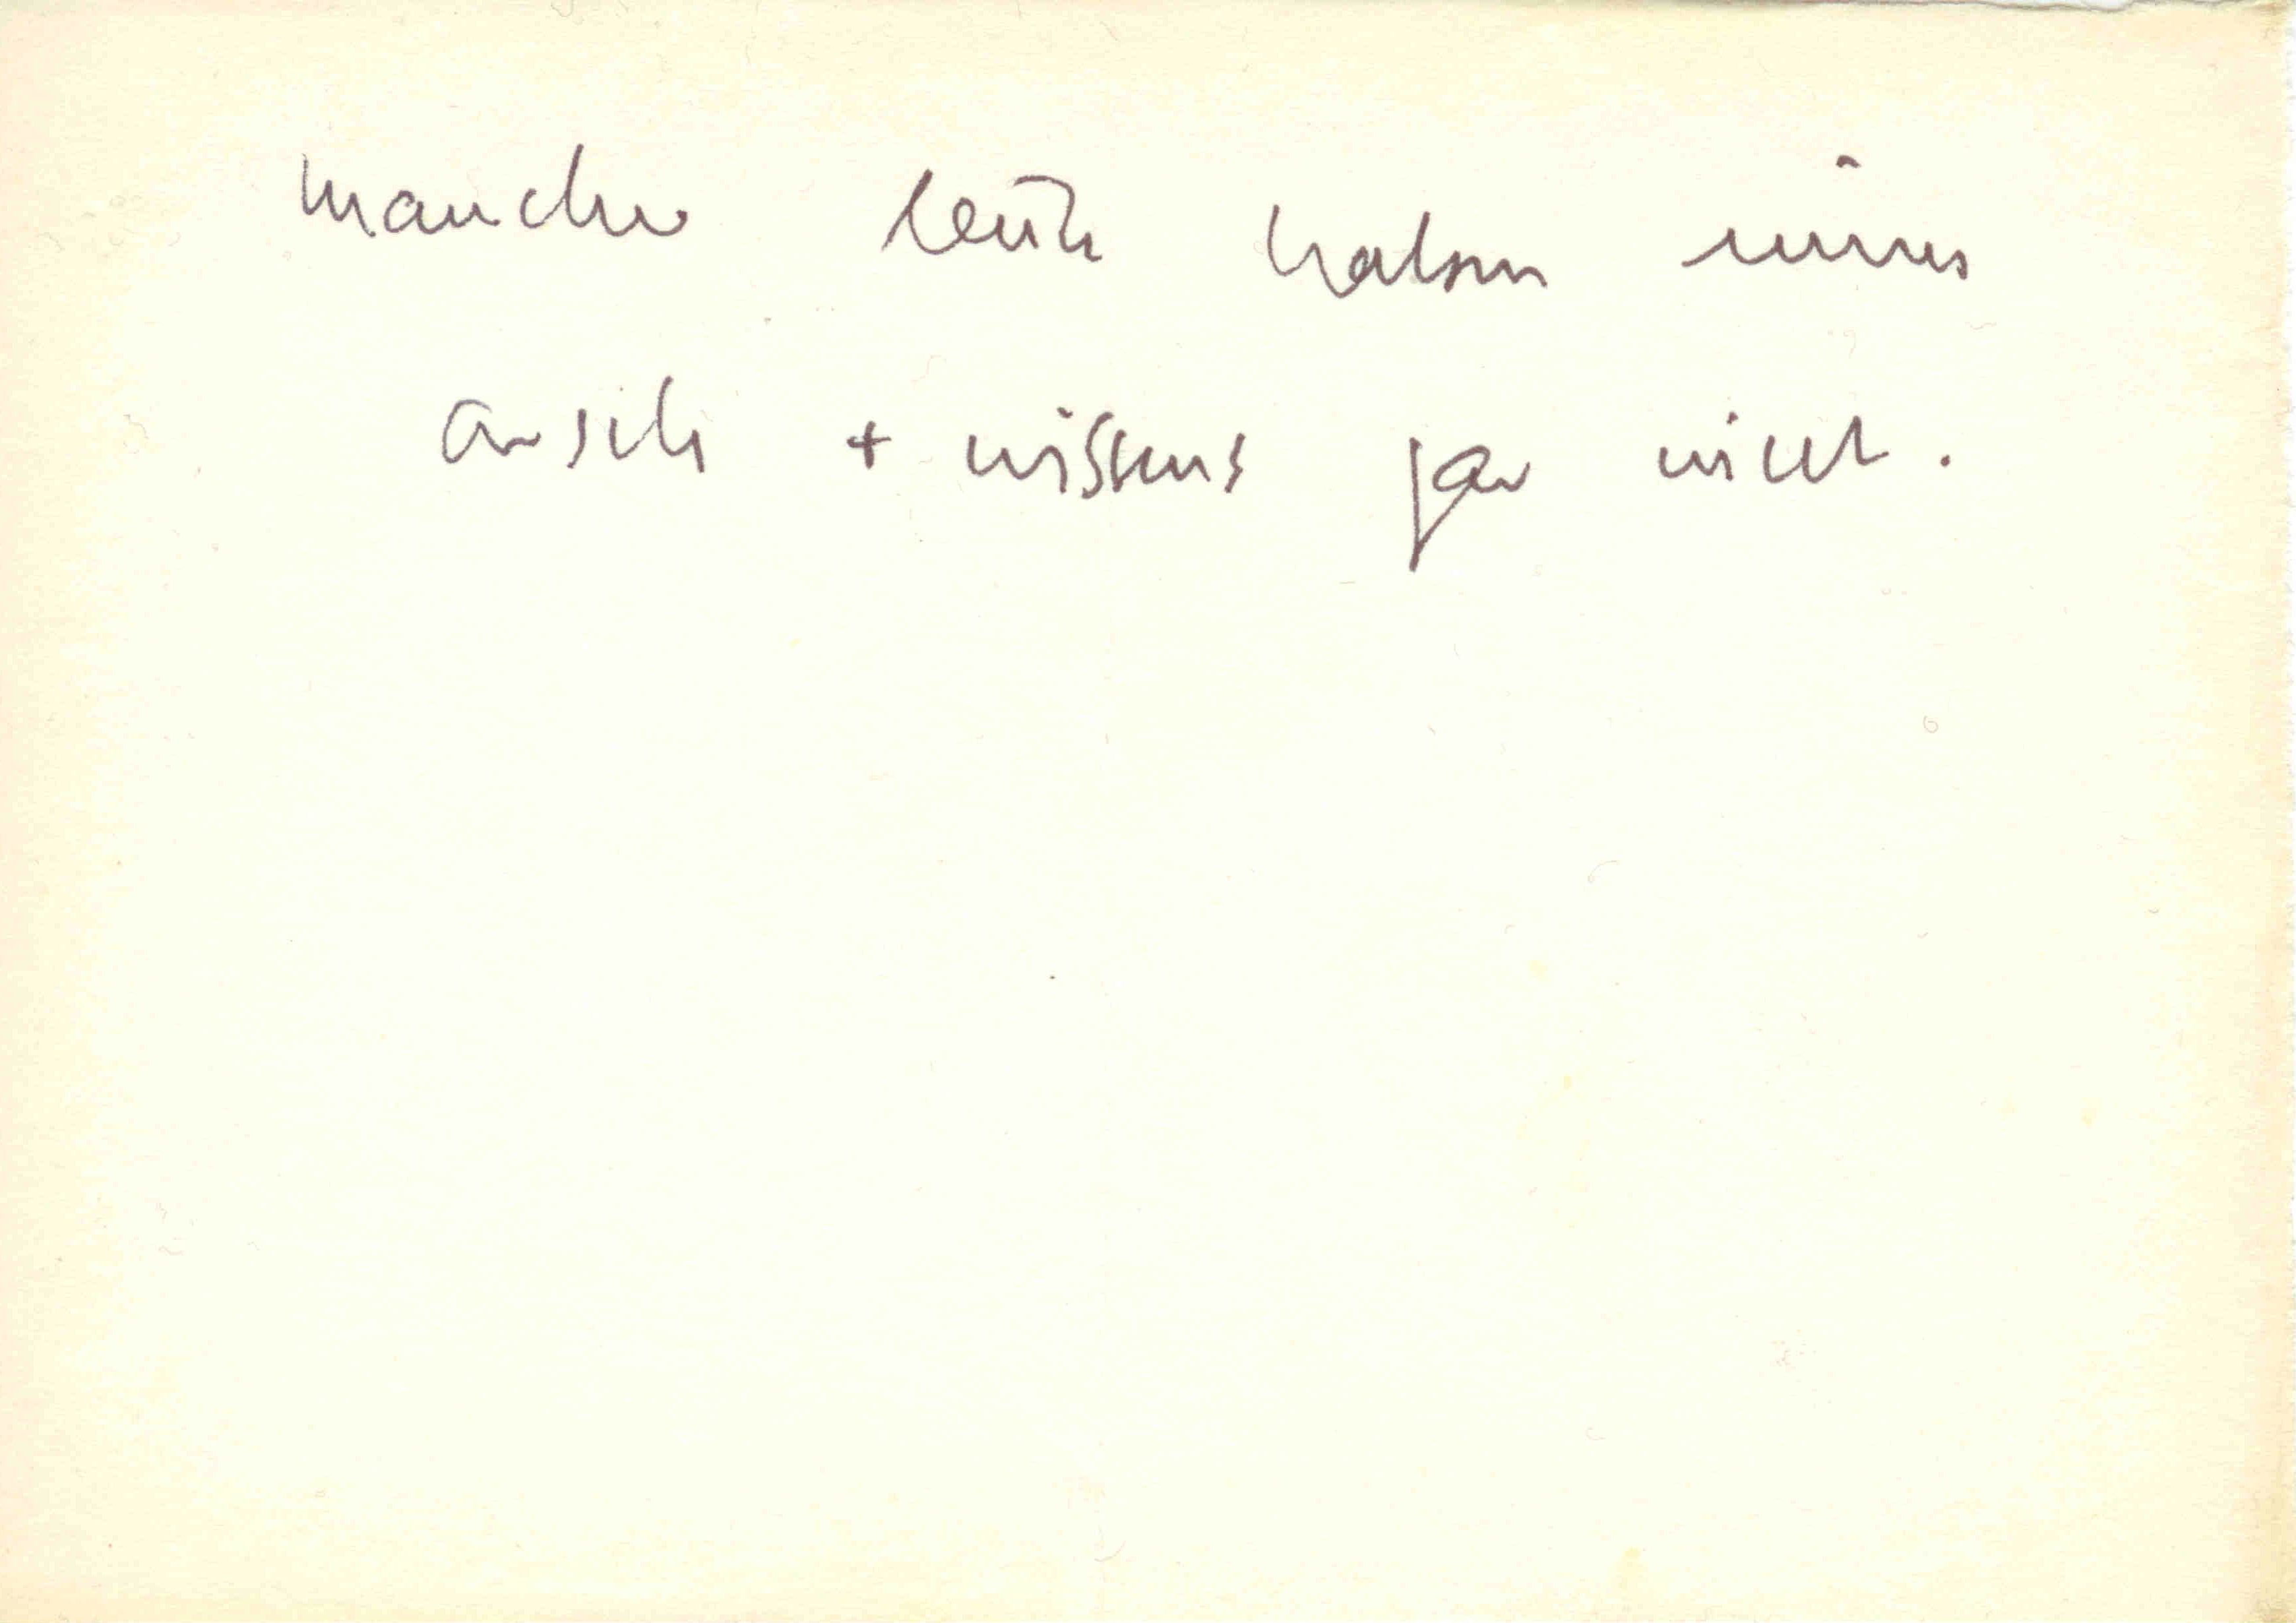 manche leute haben
an sich + wissens gar nicht.